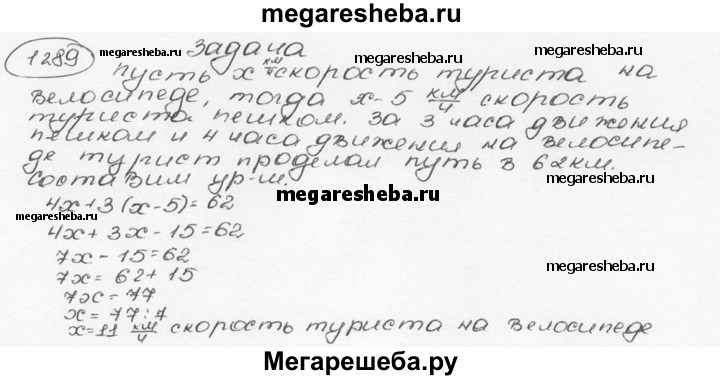 megaresheba.ru
1289 megaresheba.ru задача megaresheba.ru
пусть x км/ч скорость туриста на
велосипеде, тогда x-5 км/ч скорость
туриста пешком. За 3 часа движения
пешком и 4 часа движения на велосипе-
де турист проделал путь в 62км.
Составим ур-ш.
megaresheba.ru
4x+3(x-5)=62
megaresheba.ru
4x+3x-15=62
7x-15=62
megaresheba.ru
7x=62+15
7x=77
x=77:7
megaresheba.ru
x=11 км/ч скорость туриста на велосипеде
Мегарешеба.ру